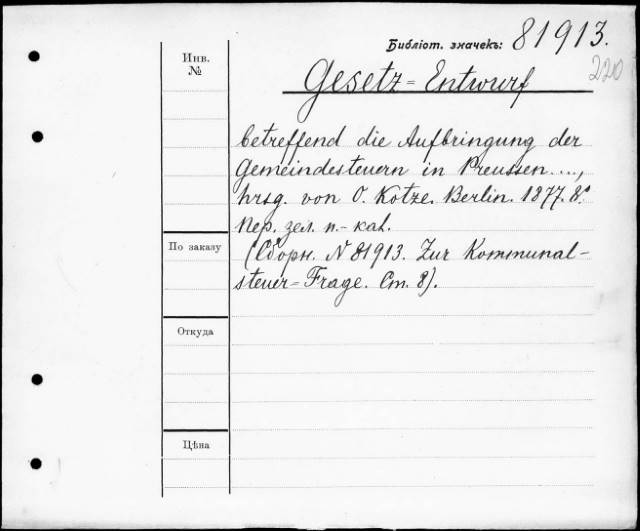 Библіот. значекъ: 81913.
220
Инв.
№
Gesetz=Entwurf
betreffend die Aufbringung der
Gemeindesteuern in Preussen....,
hrsg. von O. Kotze. Berlin. 1877. 8°.
Пер. зел. п.-каl.
(Сборн. N 81913. Zur Kommunal-
steuer=Frage. Cm. 8).
По заказу
Откуда
Цѣна